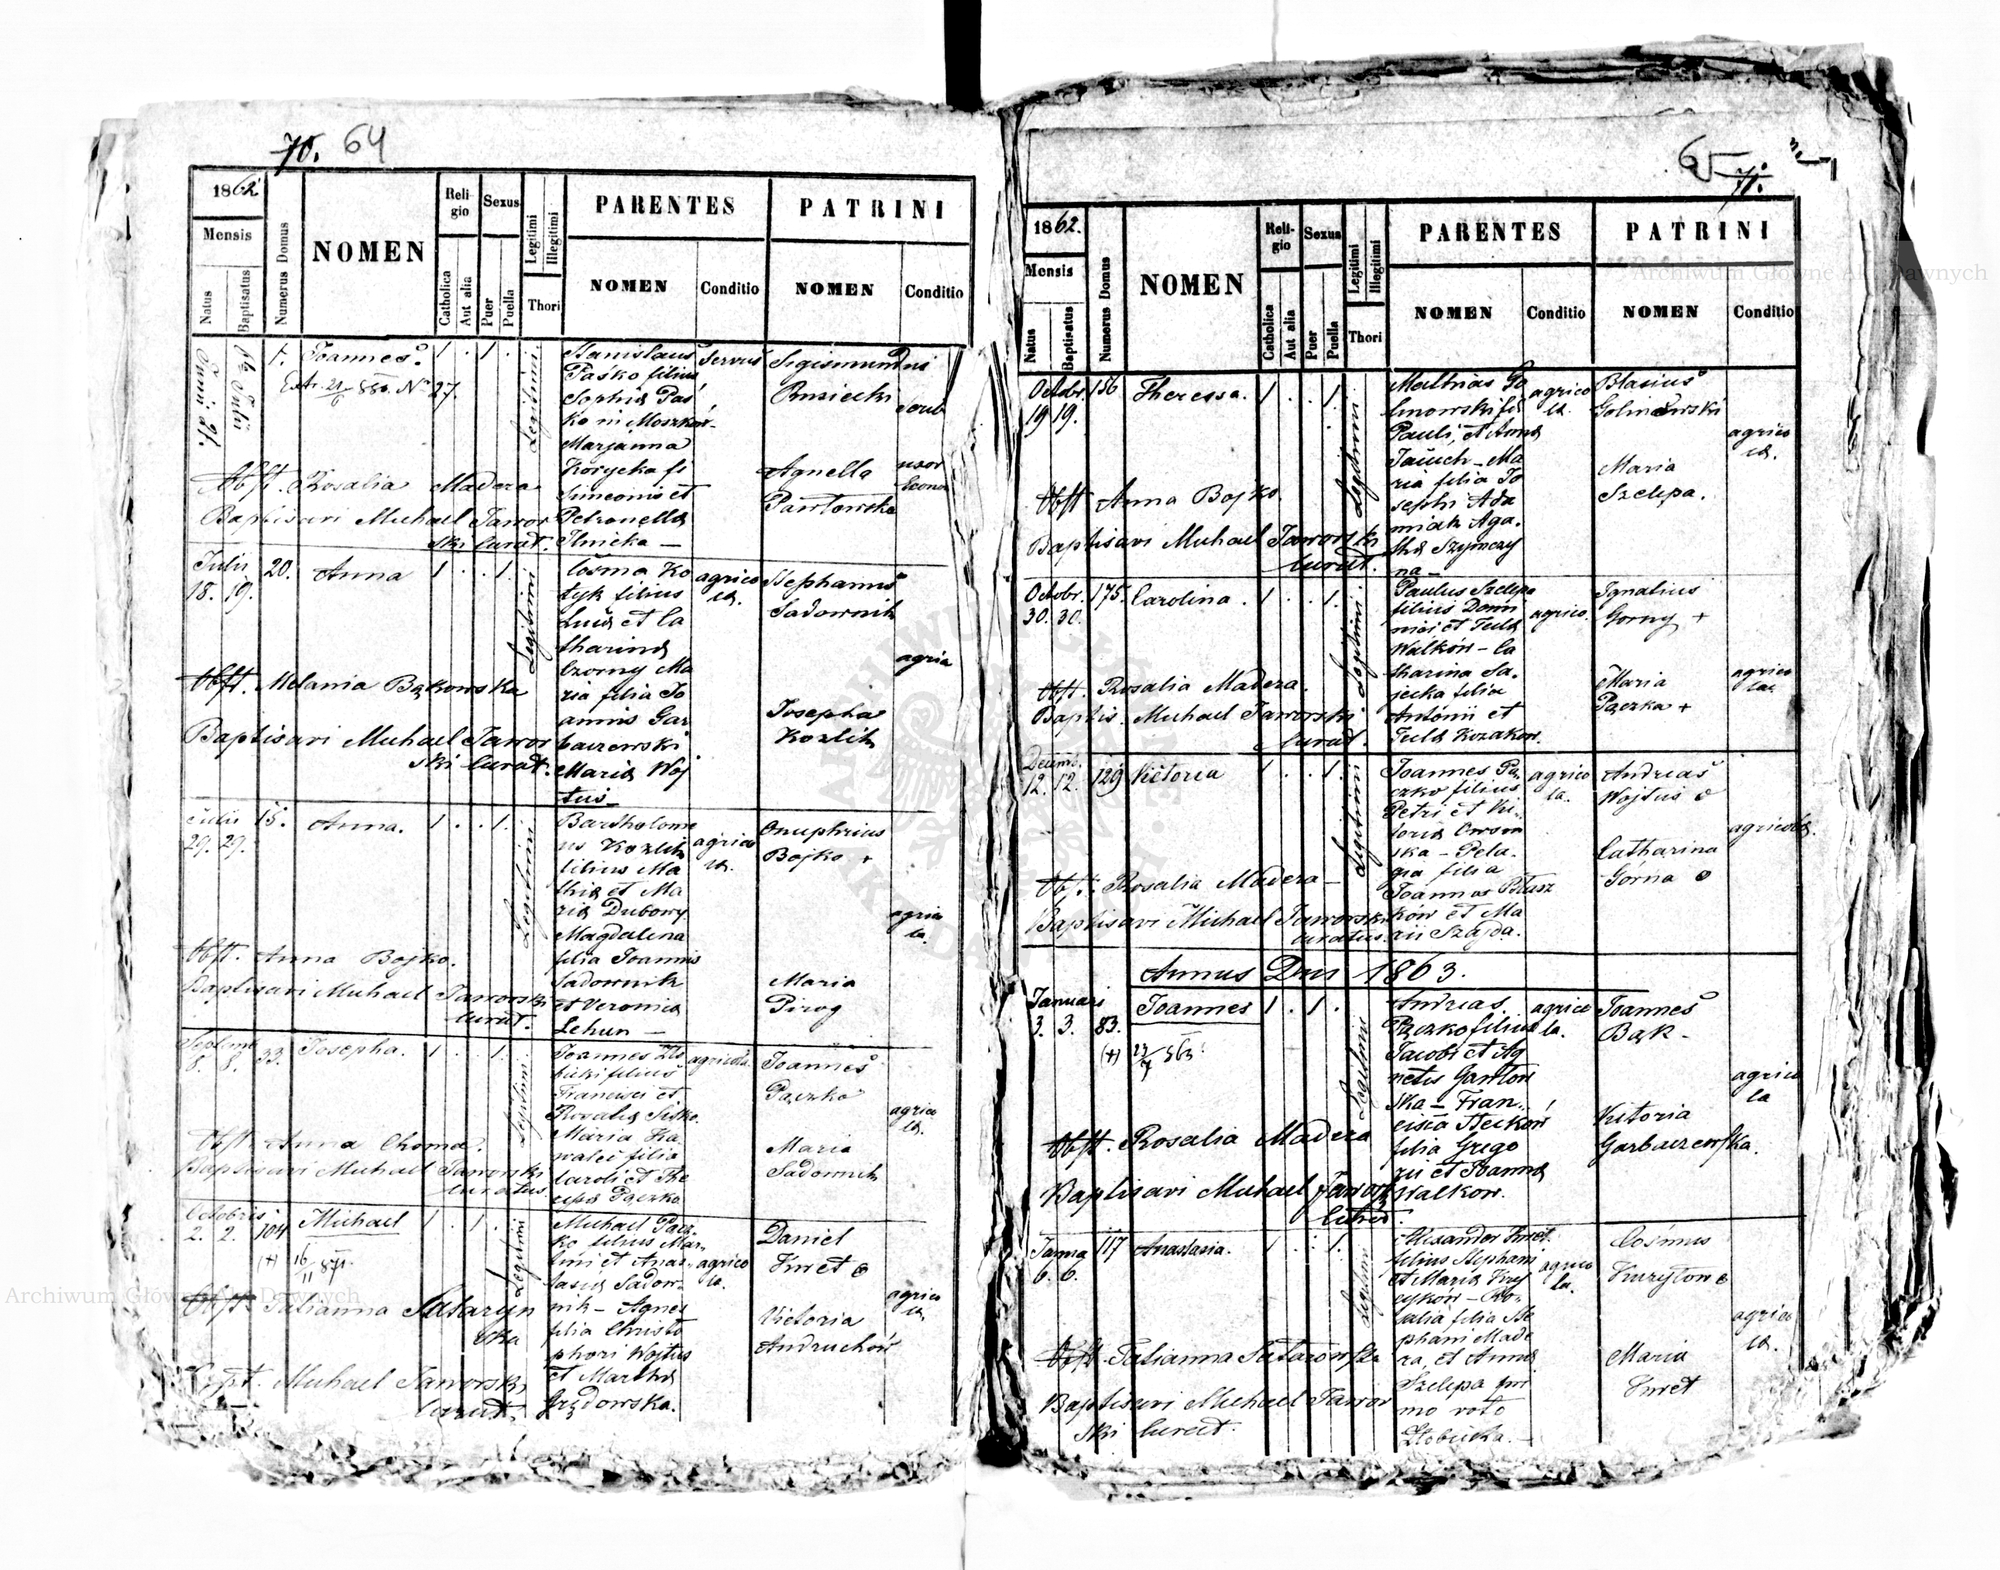 70. 64
1862
Mensis
Natus
Baptisatus
Numerus Domus
NOMEN
Religio
Catholica
Aut alia
Sexus
Puer
Puella
Legitimi
Illegitimi
Thori
PARENTES
NOMEN
Conditio
PATRINI
NOMEN
Conditio
Junii 21.
Julii
1. Joannes.
Legitimi
Stanislaus
Paśko filius
Sophiæ Paś
ko in Moszków
Marjanna
Korycka fi
Simeonis et
Petronellæ
Ilnicka —
servus
Sigismundus
Rusiecki
Agnella
Pawłowska
uxor
Obst. Rosalia Madera
Baptisavi Michael Jawor
ski Curat.
Julii
18. 19.
20.
Anna
Legitimi
Cosma Ko
tyk filius
Lucæ et Ca
tharinæ
Czorny Ma
ria filia Jo
annis Gar
baczewski
Mariæ Woj
tus —
agrico
læ.
Stephanus
Sadownik
Josepha
Kozlik
Obst. Melania Bąkowska
Baptisavi Michael Jawor
ski Curat.
Julii
29. 29.
15.
Anna.
Legitimi
Bartholome
us Kozlik
filius Ma
thiæ et Ma
riæ Dubowy
Magdalena
filia Joannis
Sadownik
et Veronica
Lehun —
agrico
læ.
Onuphrius
Bojko +
Maria
Pirog
Obst. Anna Bojko.
Baptisavi Michael Jaworski
Curat.
8. 8.
33.
Josepha.
Legitimi
Francisci et
Maria Ka
walec filia
Caroli et The
agricola
Joannes
Pączko
Maria
Sadownik
agrico
læ.
Obst. Anna Choma.
Baptisavi Michael Jaworski
Curatus
Octobris
2. 2.
104
Michael
(+) 16/11 871.
Legitimi
Michael Pącz
ko filius Mar
tini et Anas
tasiæ Sadow
nik — Agnes
filia Christo
phori Wojtus
et Marthæ
Grzędowska.
agrico
la.
Daniel
Kmet
Victoria
Andruchów
agrico
læ
Obst. Tatianna Sataryn
ska
Bapt. Michael Jaworski
Curat.
65 71.
1862.
Mensis
Natus
Baptisatus
Numerus Domus
NOMEN
Religio
Catholica
Aut alia
Sexus
Puer
Puella
Legitimi
Illegitimi
Thori
PARENTES
NOMEN
Conditio
PATRINI
NOMEN
Conditio
Octobr.
19 19.
156
Theressa.
Legitimi
Mathias Go
linowski fil.
Pauli, et Annæ
Maria filia Jo
sephi Ada
miak Aga
thæ Szymczy
na —
agrico
læ.
Blasius
Golinowski
Maria
Szelepa.
agrico
læ.
Obst Anna Bojko.
Baptisavi Michael Jaworski
Curat.
Octobr.
30. 30.
175.
Carolina.
Legitimi
Paulus Szelepa
filius Domi
nici et Teclæ
Walków — Ca
tharina Sa
jecka filia
Antonii et
Teclæ Kozakow.
agrico.
Ignatius
Gorny +
Maria
Pączka +
agrico
læ
Obst. Rosalia Madera.
Baptis. Michael Jaworski
Curat.
Decemb.
12. 12.
129
Victoria
Legitimi
Joannes Pą
czko filius
Petri et Vi
ska — Pela
gia filia
ków et Ma
rii Szajda.
agrico
la.
Andreas
Wojtus
Catharina
Górna
agricolæ.
Obst. Rosalia Madera —
Baptisavi Michael Jaworski
Curatus.
Annus Dni 1863.
Januari
3. 3.
83.
Joannes
(+)
Legitimi
Andreas
Pączko filius
Jacobi et Ag
netis Gawłow
ska — Fran
cisca Steckow
filia Grego
rii et Joannæ
Walkow.
agrico
la.
Joannes
Bąk —
Victoria
Garbaczewska.
agrico
la
Obst. Rosalia Madera
Baptisavi Michael Jawor
6. 6.
117
Anastasia.
Legitimi
Alexander Kmet
filius Stephani
et Mariæ
salia filia Ste
phani Made
ra, et Annæ
Szelepa pri
mo voto
Złobicka. —
agrico
la.
Cosmus
Kuryłow
Maria
Kmet
agrico
læ.
Obst. Tatianna Satarowska
Baptisavi Michael Jawor
ski Curat.
Archiwum Główne Akt Dawnych
Archiwum Główne Akt Dawnych